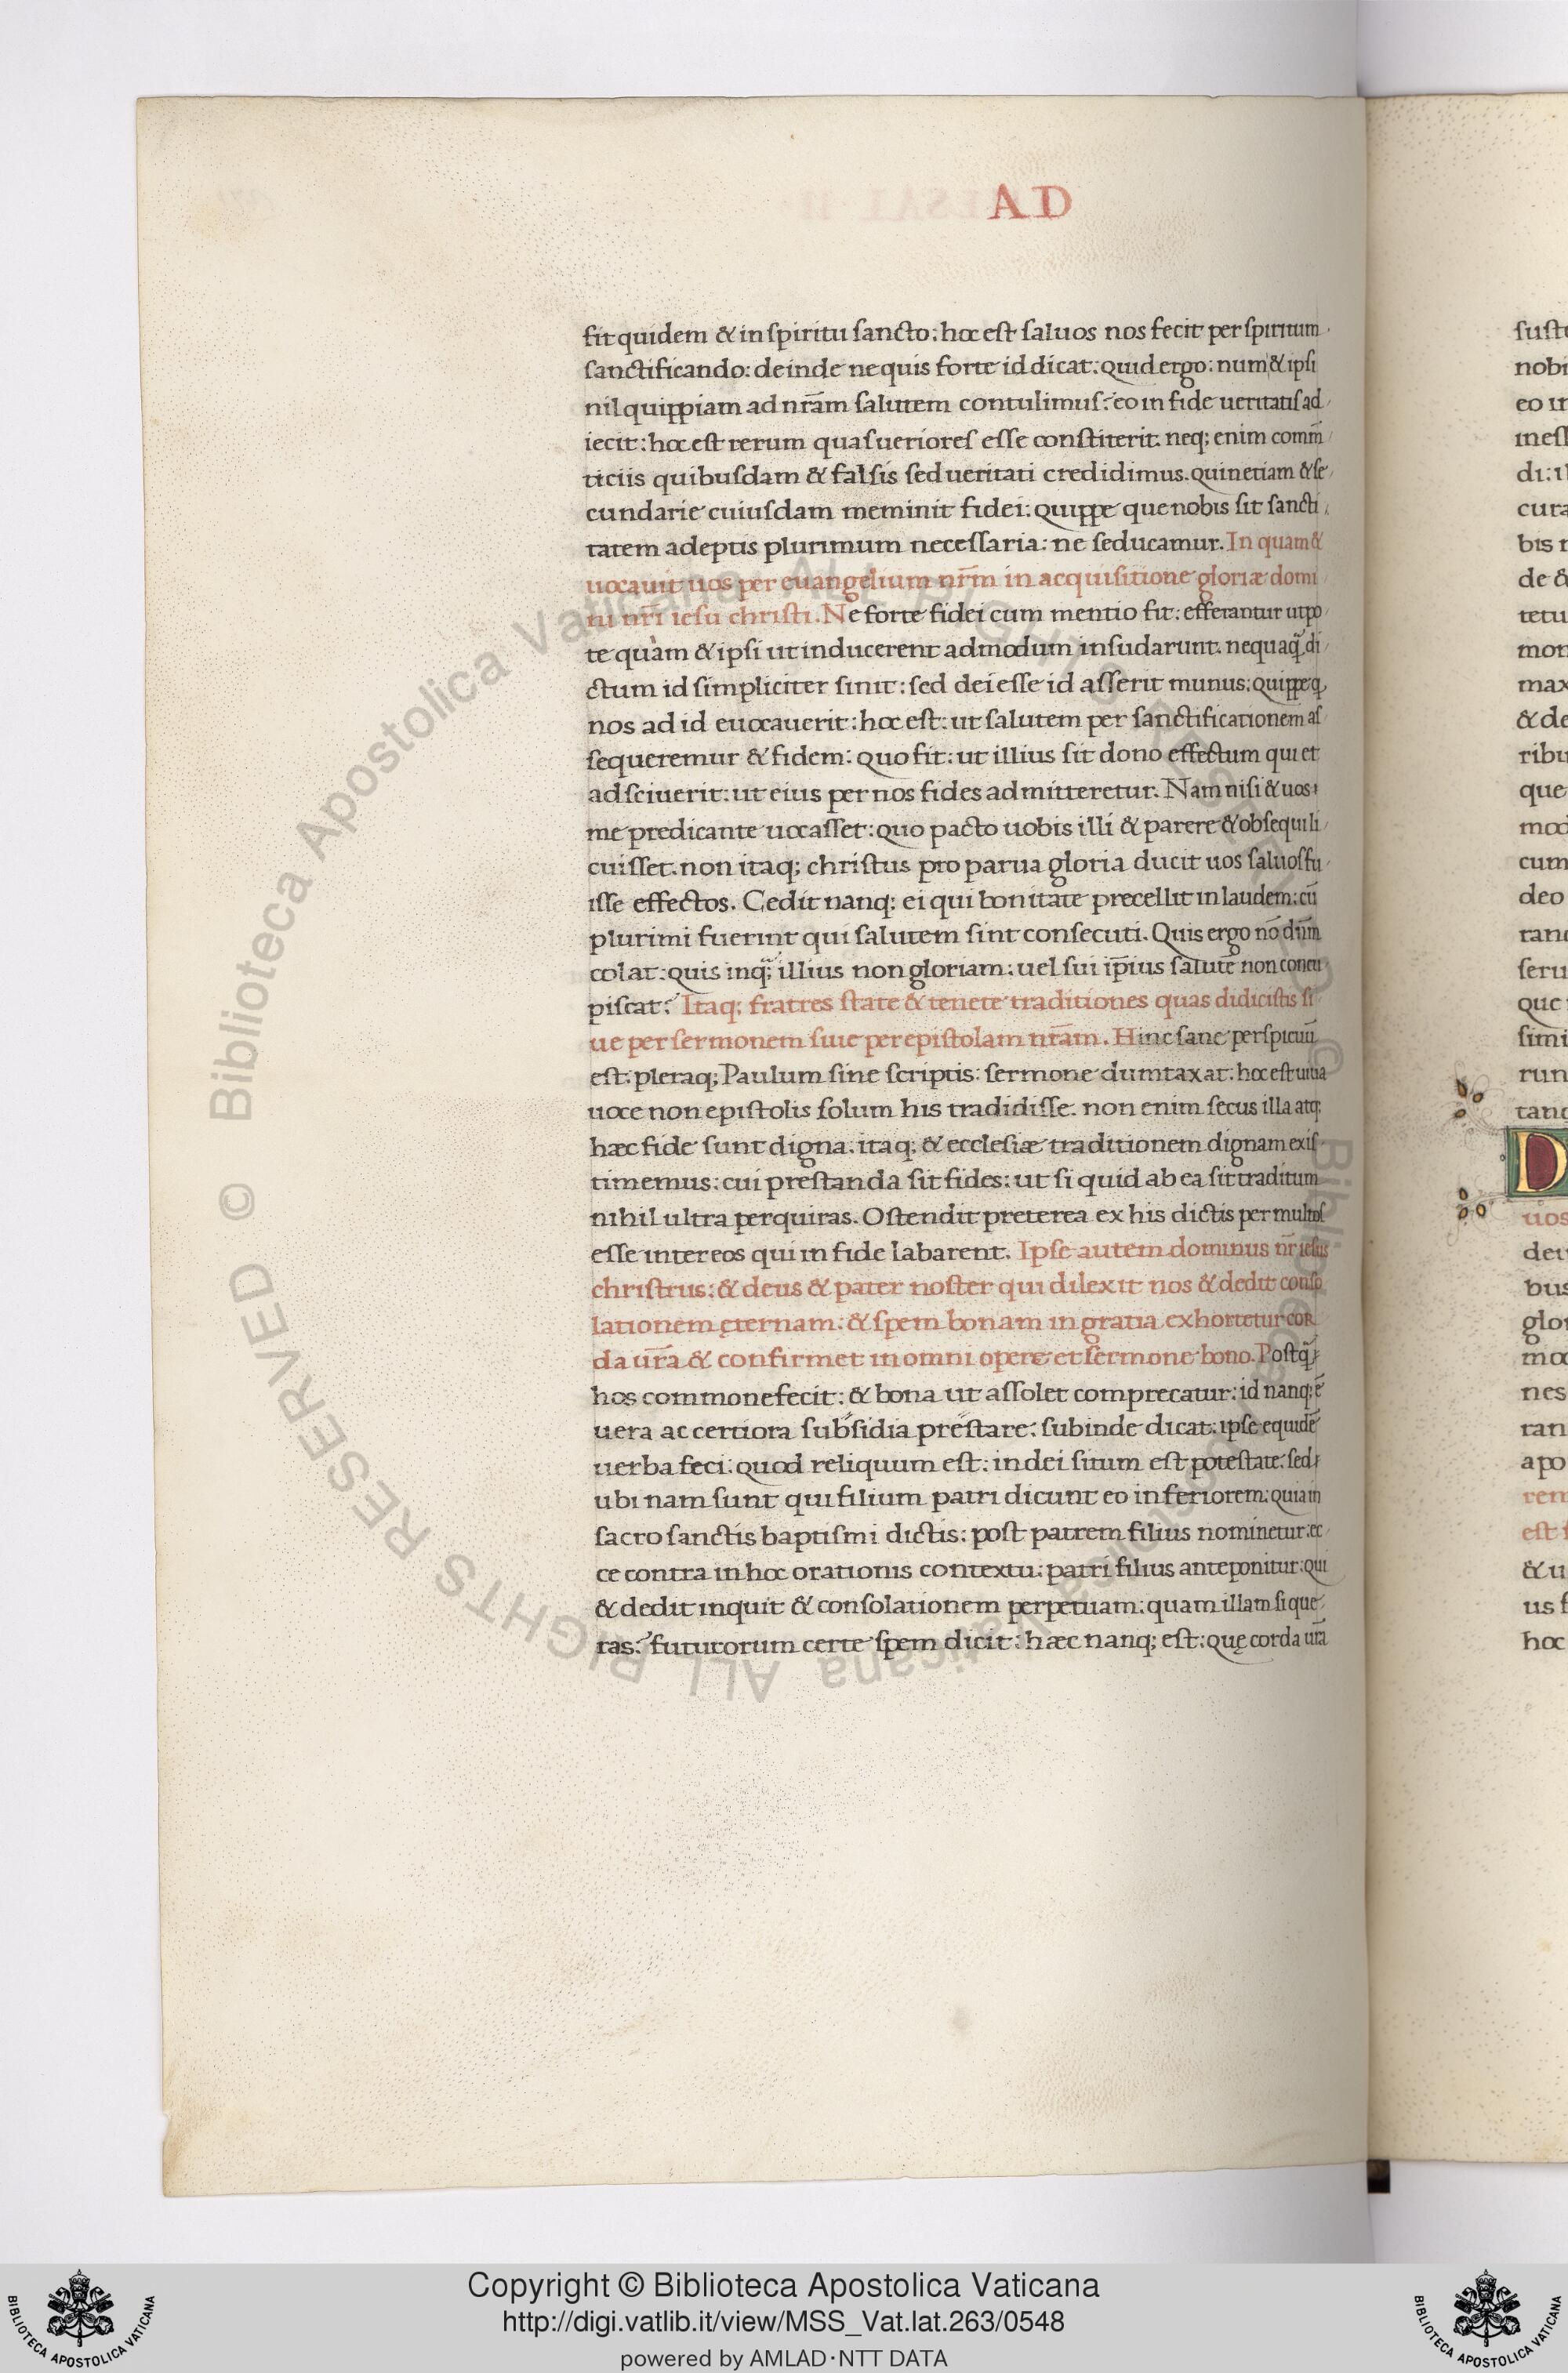 AD
fit quidem & in spiritu sancto: hoc est saluos nos fecit per spiritum
sanctificando: deinde ne quis forte id dicat: quid ergo: num & ipsi
nil quippiam ad nr̄am salutem contulimus? eo in fide ueritatis ad
iecit: hoc est rerum quas ueriores esse constiterit. neq; enim comm̄
ticiis quibusdam & falsis sed ueritati credidimus. quinetiam & se
cundarie cuiusdam meminit fidei: quippe que nobis sit sancti
tatem adeptis plurimum necessaria: ne seducamur. In quam &
uocauit uos per euangelium nr̄m in acquisitione gloriæ domi
ni nr̄i iesu christi. Ne forte fidei cum mentio fit: efferantur utpo
te quàm & ipsi ut inducerent admodum insudarunt. nequaq̃ di
ctum id simpliciter sinit: sed dei esse id asserit munus: quippe q
nos ad id euocauerit: hoc est: ut salutem per sanctificationem as
sequeremur & fidem: quo fit: ut illius sit dono effectum qui et
adsciuerit: ut eius per nos fides admitteretur. Nam nisi & uos
me predicante uocasset: quo pacto uobis illi & parere & obsequi li
cuisset. non itaq; christus pro parua gloria ducit uos saluos fu
isse effectos. Cedit nanq; ei qui bonitate precellit in laudem: cū
plurimi fuerint qui salutem sint consecuti. Quis ergo nō dn̄m
colat: quis inq̃; illius non gloriam: uel sui ip̄ius salutē non concu
piscat? Itaq; fratres state & tenete traditiones quas didicistis si
ue per sermonem siue per epistolam nr̄am. Hinc sane perspicuū
est: pleraq; Paulum sine scriptis: sermone dumtaxat: hoc est uiua
uoce non epistolis solum his tradidisse. non enim secus illa atq;
hæc fide sunt digna. itaq; & ecclesiæ traditionem dignam exis
timemus: cui prestanda sit fides: ut si quid ab ea sit traditum
nihil ultra perquiras. Ostendit preterea ex his dictis per multos
esse inter eos qui in fide labarent. Ipse autem dominus nr̄ iesus
christrus: & deus & pater noster qui dilexit nos & dedit conso
lationem ęternam: & spem bonam in gratia exhortetur cor
da ur̄a & confirmet in omni opere et sermone bono. Postq̃
hos commonefecit: & bona ut assolet comprecatur: id nanq; ē
uera ac certiora subsidia prestare: subinde dicat: ipse equidē
uerba feci: quod reliquum est: in dei situm est potestate: sed
ubi nam sunt qui filium patri dicunt eo inferiorem: quia in
sacro sanctis baptismi dictis: post patrem filius nominetur: ec
ce contra in hoc orationis contextu: patri filius anteponitur: qui
& dedit inquit & consolationem perpetuam: quam illam si que
ras? futurorum certe spem dicit: hæc nanq; est: quę corda ur̄a
© Biblioteca Apostolica Vaticana ALL RIGHTS RESERVED
© Biblioteca Apostolica Vaticana ALL RIGHTS RESERVED
D
Copyright © Biblioteca Apostolica Vaticana
http://digi.vatlib.it/view/MSS_Vat.lat.263/0548
powered by AMLAD·NTT DATA
BIBLIOTECA APOSTOLICA VATICANA
BIBLIOTECA APOSTOLICA VATICANA